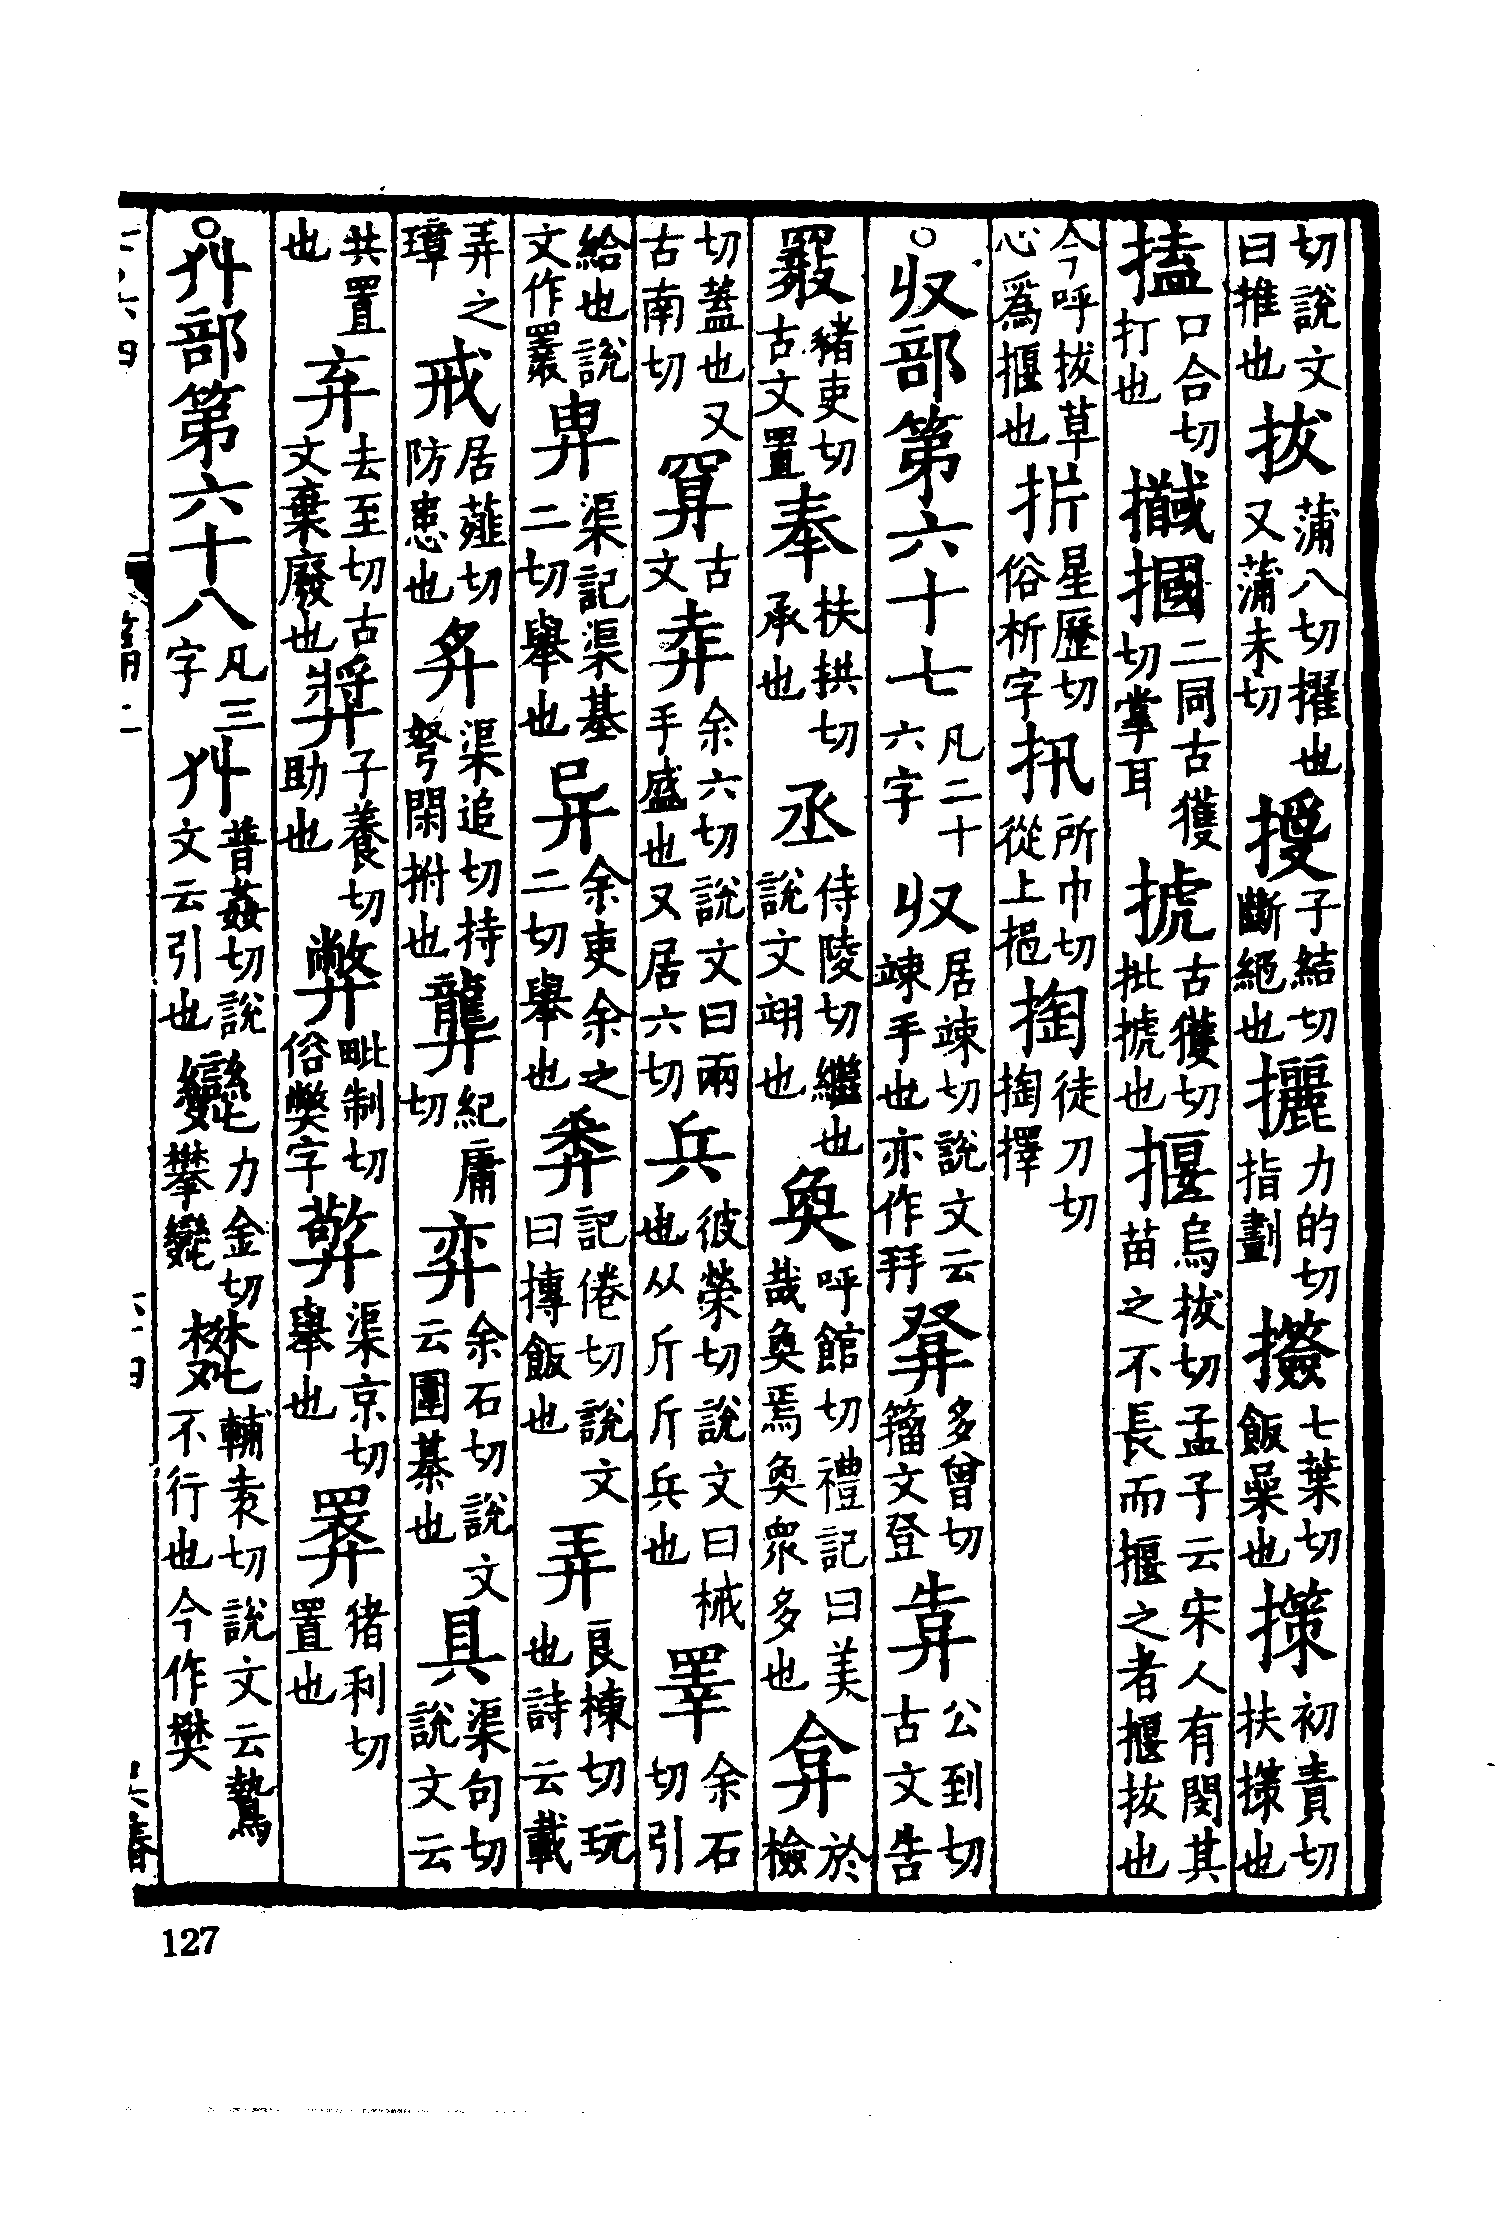 切說文曰推也拔蒲八切擢也又蒲未切㩢子結切斷絕也攦力的切指劃㩞七葉切飯㩞也㩍初責切扶㩍也
搕口合切打也摑二同古獲切掌耳㩴古獲切批㩴也揠烏拔切孟子云宋人有閔其苗之不長而揠之者揠拔也
今呼拔草心爲揠也㧳星歷切俗析字扟所巾切從上挹掏徒刀切掏擇
○収部第六十七凡二十六字収居竦切說文云竦手也亦作拜𤼷多曾切籀文登𢍎公到切古文告
𦋐豬吏切古文置奉扶拱切承也丞侍陵切繼也說文翊也奐呼館切禮記曰美哉奐焉奐衆多也弇於檢
切蓋也又古南切㝣古文𡴫余六切說文曰兩手盛也又居六切兵彼榮切說文曰械也从斤斤兵也睪余石切引
給也說文作睪畁渠記渠基二切舉也异余吏余之二切舉也𢍏記倦切說文曰摶飯也弄良棟切玩也詩云載
弄之璋戒居薤切防患也𢌵渠追切持弩閑拊也龏紀庸切弈余石切說文云圍棊也具渠句切說文云
共置也弃去至切古文棄廢也㢡子養切助也弊毗制切俗獘字㢣渠京切舉也𦋼猪利切置也
○𠬜部第六十八凡三字𠬜普姦切說文云引也㜻力金切攀㜻樊輔袁切說文云騺不行也今作樊
127